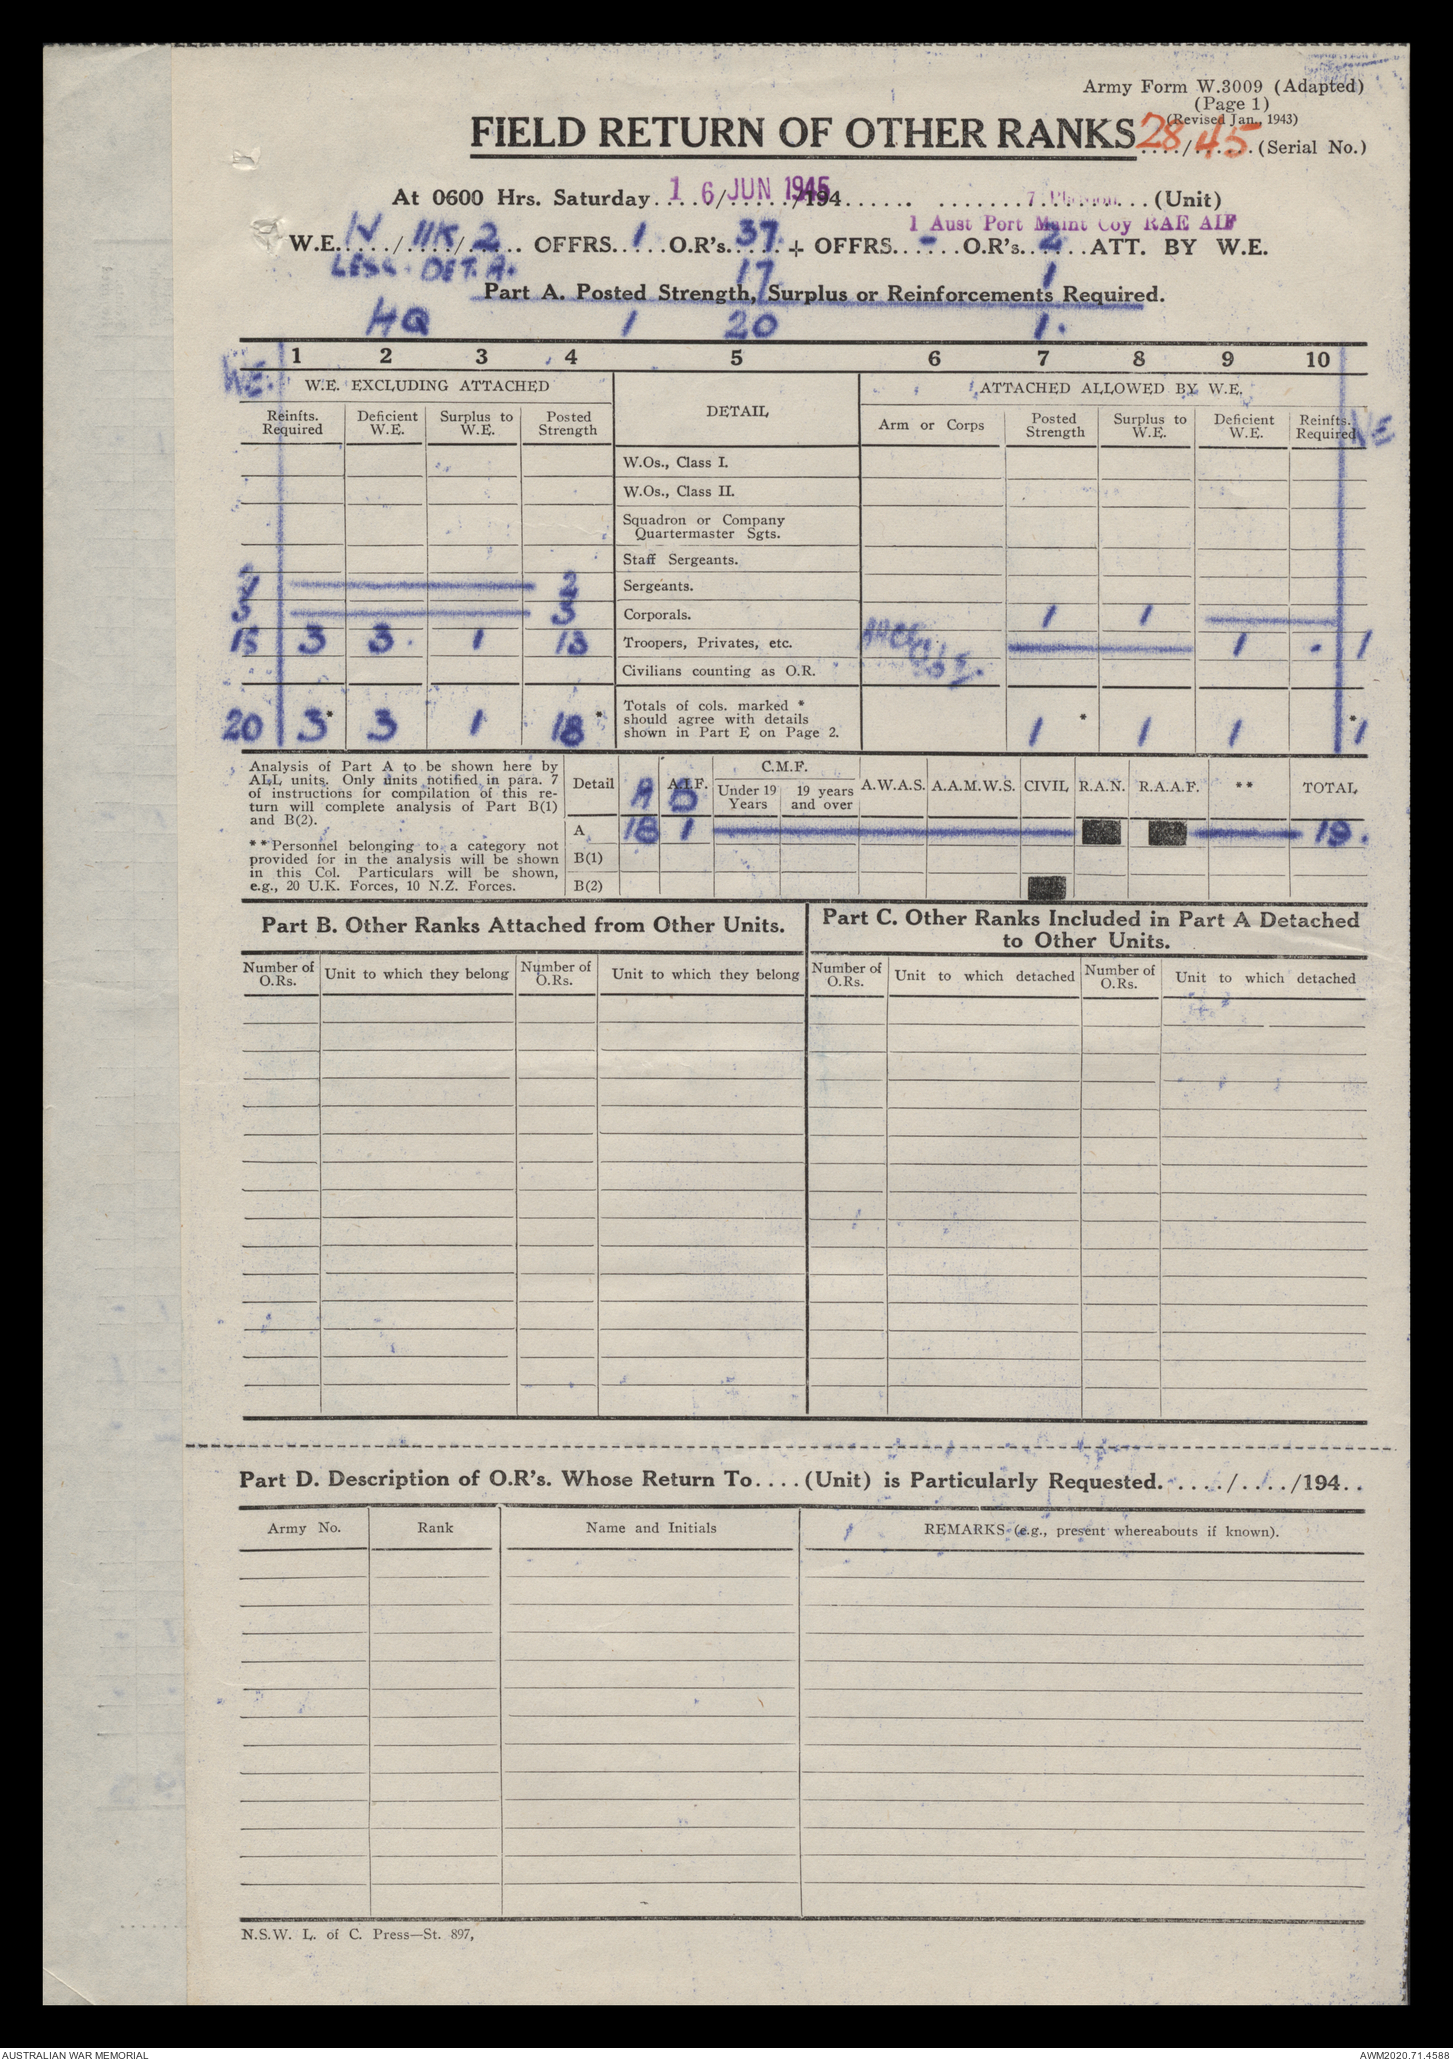 Army Form W.3009 (Adapted)
(Page 1)
(Revised Jan., 1943)
FIELD RETURN OF OTHER RANKS 28/45 (Serial No.)
At 0600 Hrs. Saturday 16 JUN 1945 /194...... ........ 7 Platoon (Unit)
1 Aust Port Maint Coy RAE AIF
W.E. IV / 11K / 2 OFFRS. 1 O.R's. 37 + OFFRS. - O.R's. 2 ATT. BY W.E.
LESS DET. A. 17 1
Part A. Posted Strength, Surplus or Reinforcements Required.
HQ 1 20 1.
1 2 3 4 5 6 7 8 9 10
W.E. W.E. EXCLUDING ATTACHED DETAIL ATTACHED ALLOWED BY W.E. WE
Reinfts. Required Deficient W.E. Surplus to W.E. Posted Strength Arm or Corps Posted Strength Surplus to W.E. Deficient W.E. Reinfts. Required
W.Os., Class I.
W.Os., Class II.
Squadron or Company
Quartermaster Sgts.
Staff Sergeants.
2 2 Sergeants.
3 3 Corporals. 1 1
15 3 3. 1 13 Troopers, Privates, etc. 1 - 1
Civilians counting as O.R.
20 3* 3 1 18* Totals of cols. marked * should agree with details shown in Part E on Page 2. 1 * 1 1 * 1
Analysis of Part A to be shown here by
ALL units. Only units notified in para. 7
of instructions for compilation of this re-
turn will complete analysis of Part B(1)
and B(2).
**Personnel belonging to a category not
provided for in the analysis will be shown
in this Col. Particulars will be shown,
e.g., 20 U.K. Forces, 10 N.Z. Forces.
Detail A B A.I.F. C.M.F. Under 19 Years 19 years and over A.W.A.S. A.A.M.W.S. CIVIL R.A.N. R.A.A.F. ** TOTAL
A 18 1 19.
B(1)
B(2)
Part B. Other Ranks Attached from Other Units.
Part C. Other Ranks Included in Part A Detached
to Other Units.
Number of O.Rs. Unit to which they belong Number of O.Rs. Unit to which they belong Number of O.Rs. Unit to which detached Number of O.Rs. Unit to which detached
Part D. Description of O.R's. Whose Return To.... (Unit) is Particularly Requested. ..../..../194..
Army No. Rank Name and Initials REMARKS (e.g., present whereabouts if known).
N.S.W. L. of C. Press—St. 897,
AUSTRALIAN WAR MEMORIAL AWM2020.71.4588